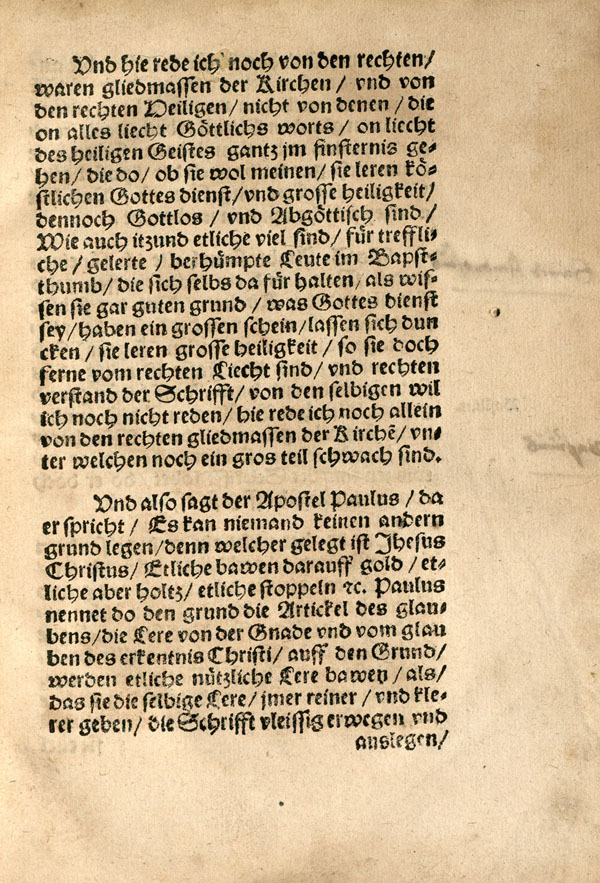 Vnd hie rede ich noch von den rechten/
waren gliedmassen der Kirchen / vnd von
den rechten Heiligen/ nicht von denen / die
on alles liecht Göttlichs worts / on liecht
des heiligen Geistes gantz jm finsternis ge⸗
hen/ die do/ ob sie wol meinen/ sie leren kö⸗
stlichen Gottes dienst/vnd grosse heiligkeit/
dennoch Gottlos / vnd Abgöttisch sind/
Wie auch itzund etliche viel sind/ für treffli⸗
che / gelerte / berhümpte Leute im Bapst⸗
thumb/ die sich selbs da für halten, als wis⸗
sen sie gar guten grund / was Gottes dienst
sey/haben ein grossen schein/lassen sich dun
cken / sie leren grosse heiligkeit / so sie doch
ferne vom rechten Liecht sind/ vnd rechten
verstand der Schrifft/ von den selbigen wil
ich noch nicht reden/ hie rede ich noch allein
von den rechten gliedmassen der Kirchẽ/ vn⸗
ter welchen noch ein gros teil schwach sind.
Vnd also sagt der Apostel Paulus / da
er spricht / Es kan niemand keinen andern
grund legen/denn welcher gelegt ist Jhesus
Christus/ Etliche bawen darauff gold / et⸗
liche aber holtz/ etliche stoppeln ꝛc. Paulus
nennet do den grund die Artickel des glau⸗
bens/die Lere von der Gnade vnd vom glau
ben des erkentnis Christi/ auff den Grund/
werden etliche nützliche Lere bawen/ als/
das sie die selbige Lere/ jmer reiner / vnd kle⸗
rer geben/ die Schrifft vleissig erwegen vnd
auslegen/